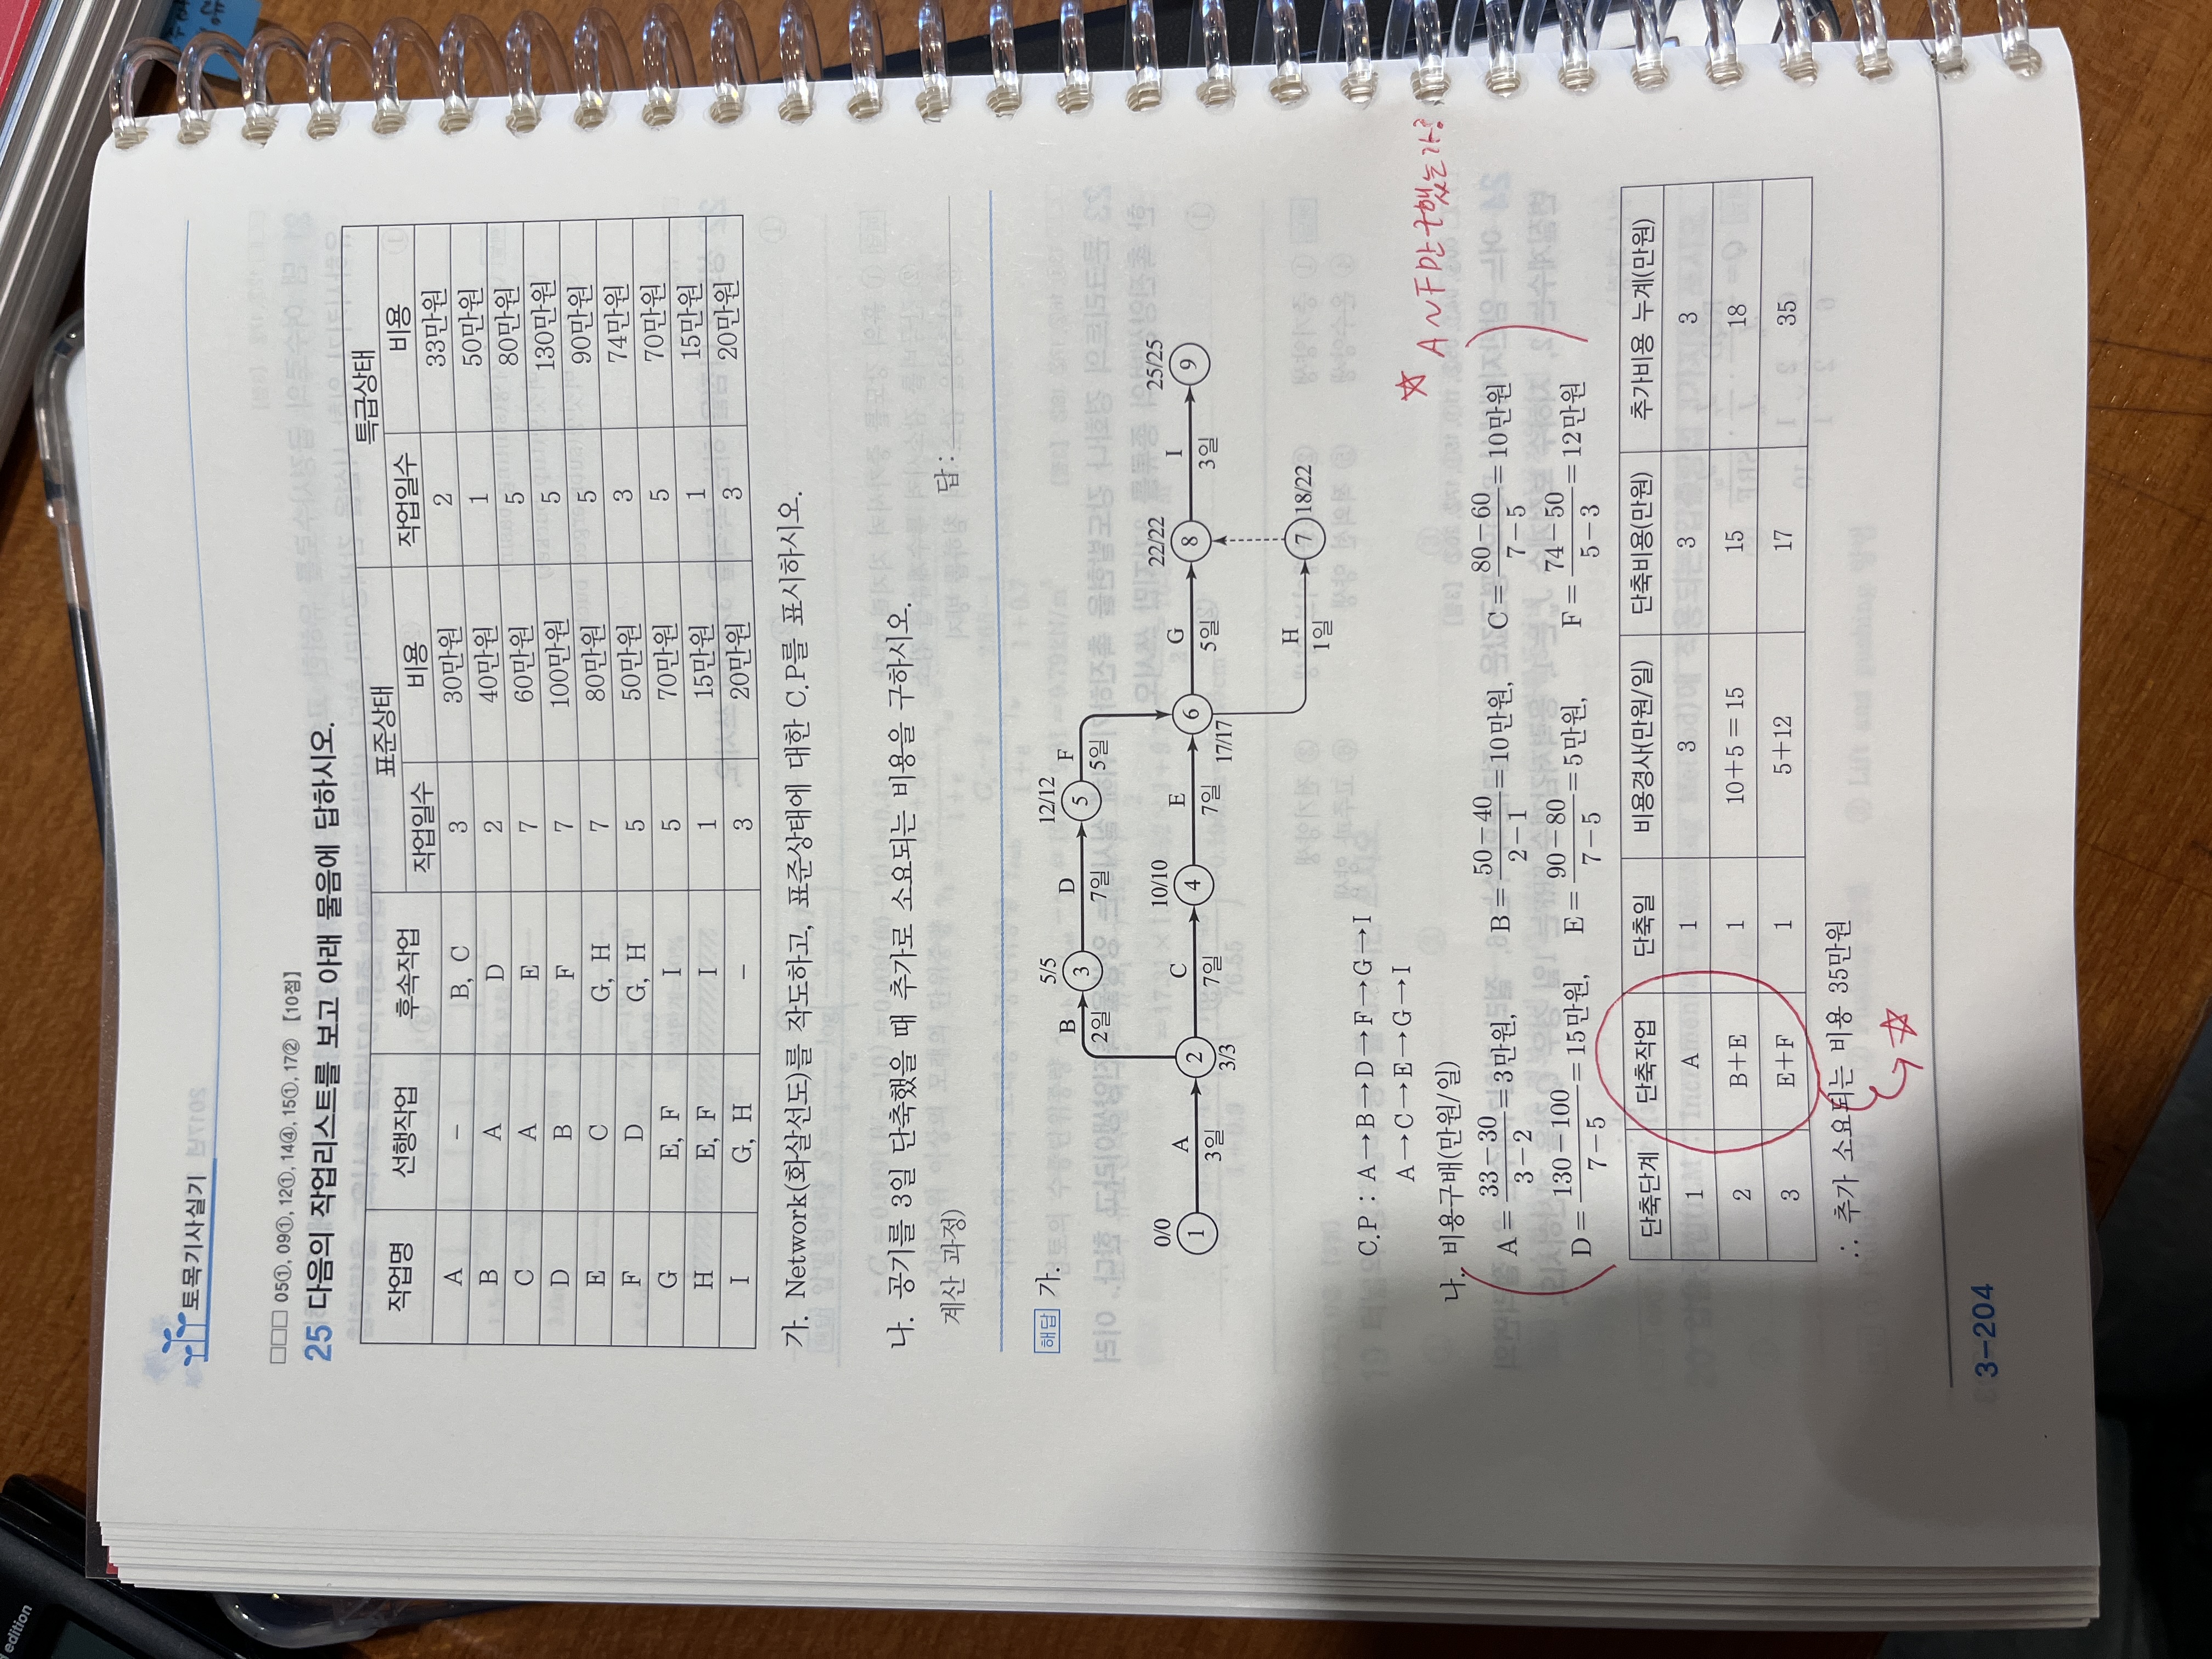 토목기사실기
□□□ 05①, 09①, 12①, 14④, 15①, 17② [10점]
25 다음의 작업리스트를 보고 아래 물음에 답하시오.
작업명 선행작업 후속작업 표준상태 특급상태
작업일수 비용 작업일수 비용
A - B, C 3 30만원 2 33만원
B A D 2 40만원 1 50만원
C A E 7 60만원 5 80만원
D B F 7 100만원 5 130만원
E C G, H 7 80만원 5 90만원
F D G, H 5 50만원 3 74만원
G E, F I 5 70만원 5 70만원
H E, F I 1 15만원 1 15만원
I G, H - 3 20만원 3 20만원
가. Network(화살선도)를 작도하고, 표준상태에 대한 C.P를 표시하시오.
나. 공기를 3일 단축했을 때 추가로 소요되는 비용을 구하시오.
계산 과정) 답 :
해답 가.
5/5 12/12
B D F
2일 3 7일 5 5일
0/0 10/10 22/22 25/25
1 A 2 C 4 E 6 G 8 I 9
3일 7일 7일 5일 3일
3/3 17/17
H 7 18/22
1일
C.P : A→B→D→F→G→I
A→C→E→G→I
☆ A~F만 구했는가?
나. 비용구배(만원/일)
A = 33-30 / 3-2 = 3만원, B = 50-40 / 2-1 = 10만원, C = 80-60 / 7-5 = 10만원
D = 130-100 / 7-5 = 15만원, E = 90-80 / 7-5 = 5만원, F = 74-50 / 5-3 = 12만원
단축단계 단축작업 단축일 비용경사(만원/일) 단축비용(만원) 추가비용 누계(만원)
1 A 1 3 3 3
2 B+E 1 10+5=15 15 18
3 E+F 1 5+12 17 35
∴ 추가 소요되는 비용 35만원
☆
3-204
edition